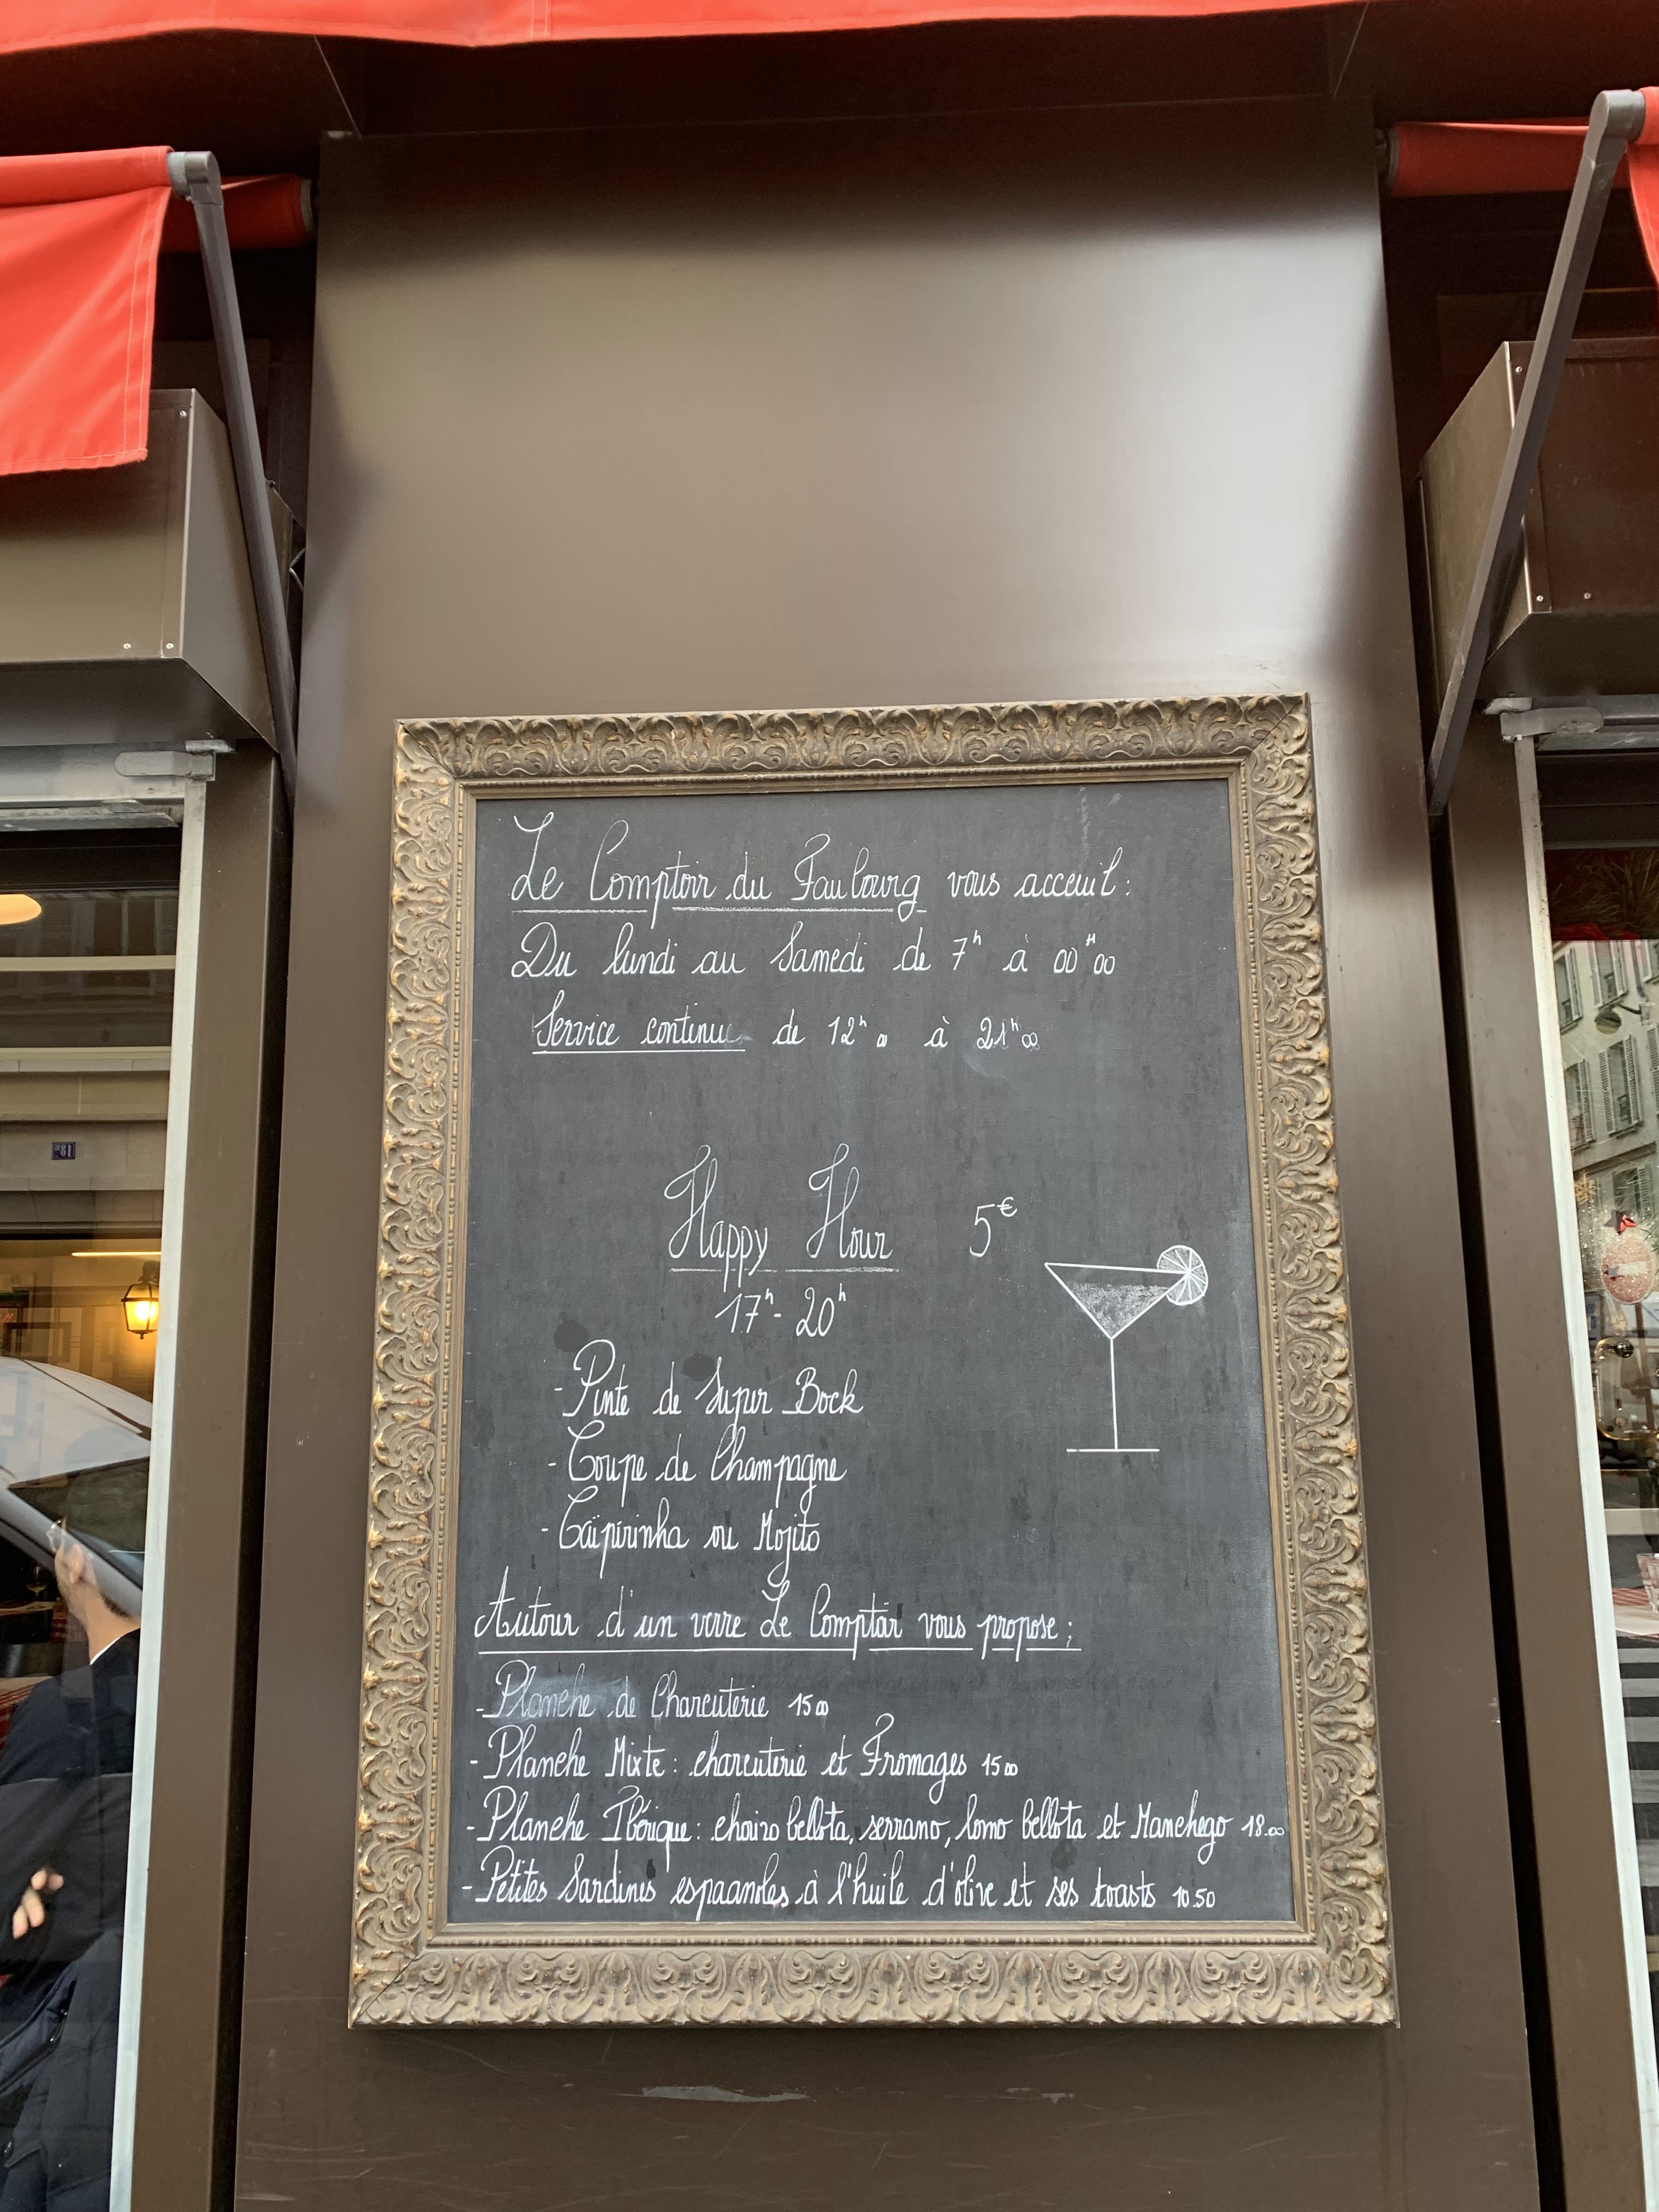 Le Comptoir du Faubourg vous acceuil :
Du lundi au Samedi de 7h à 00H00
Service continue de 12h00 à 21h00
Happy Hour 5€
17h - 20h
- Pinte de Super Bock
- Coupe de Champagne
- Caïpirinha ou Mojito
Autour d'un verre Le Comptoir vous propose :
- Planche de Charcuterie 15 00
- Planche Mixte : charcuterie et Fromages 15 00
- Planche Ibérique : chorizo bellota, serrano, lomo bellota et Manchego 18.00
- Petites Sardines espagnoles à l'huile d'olive et ses toasts 10.50